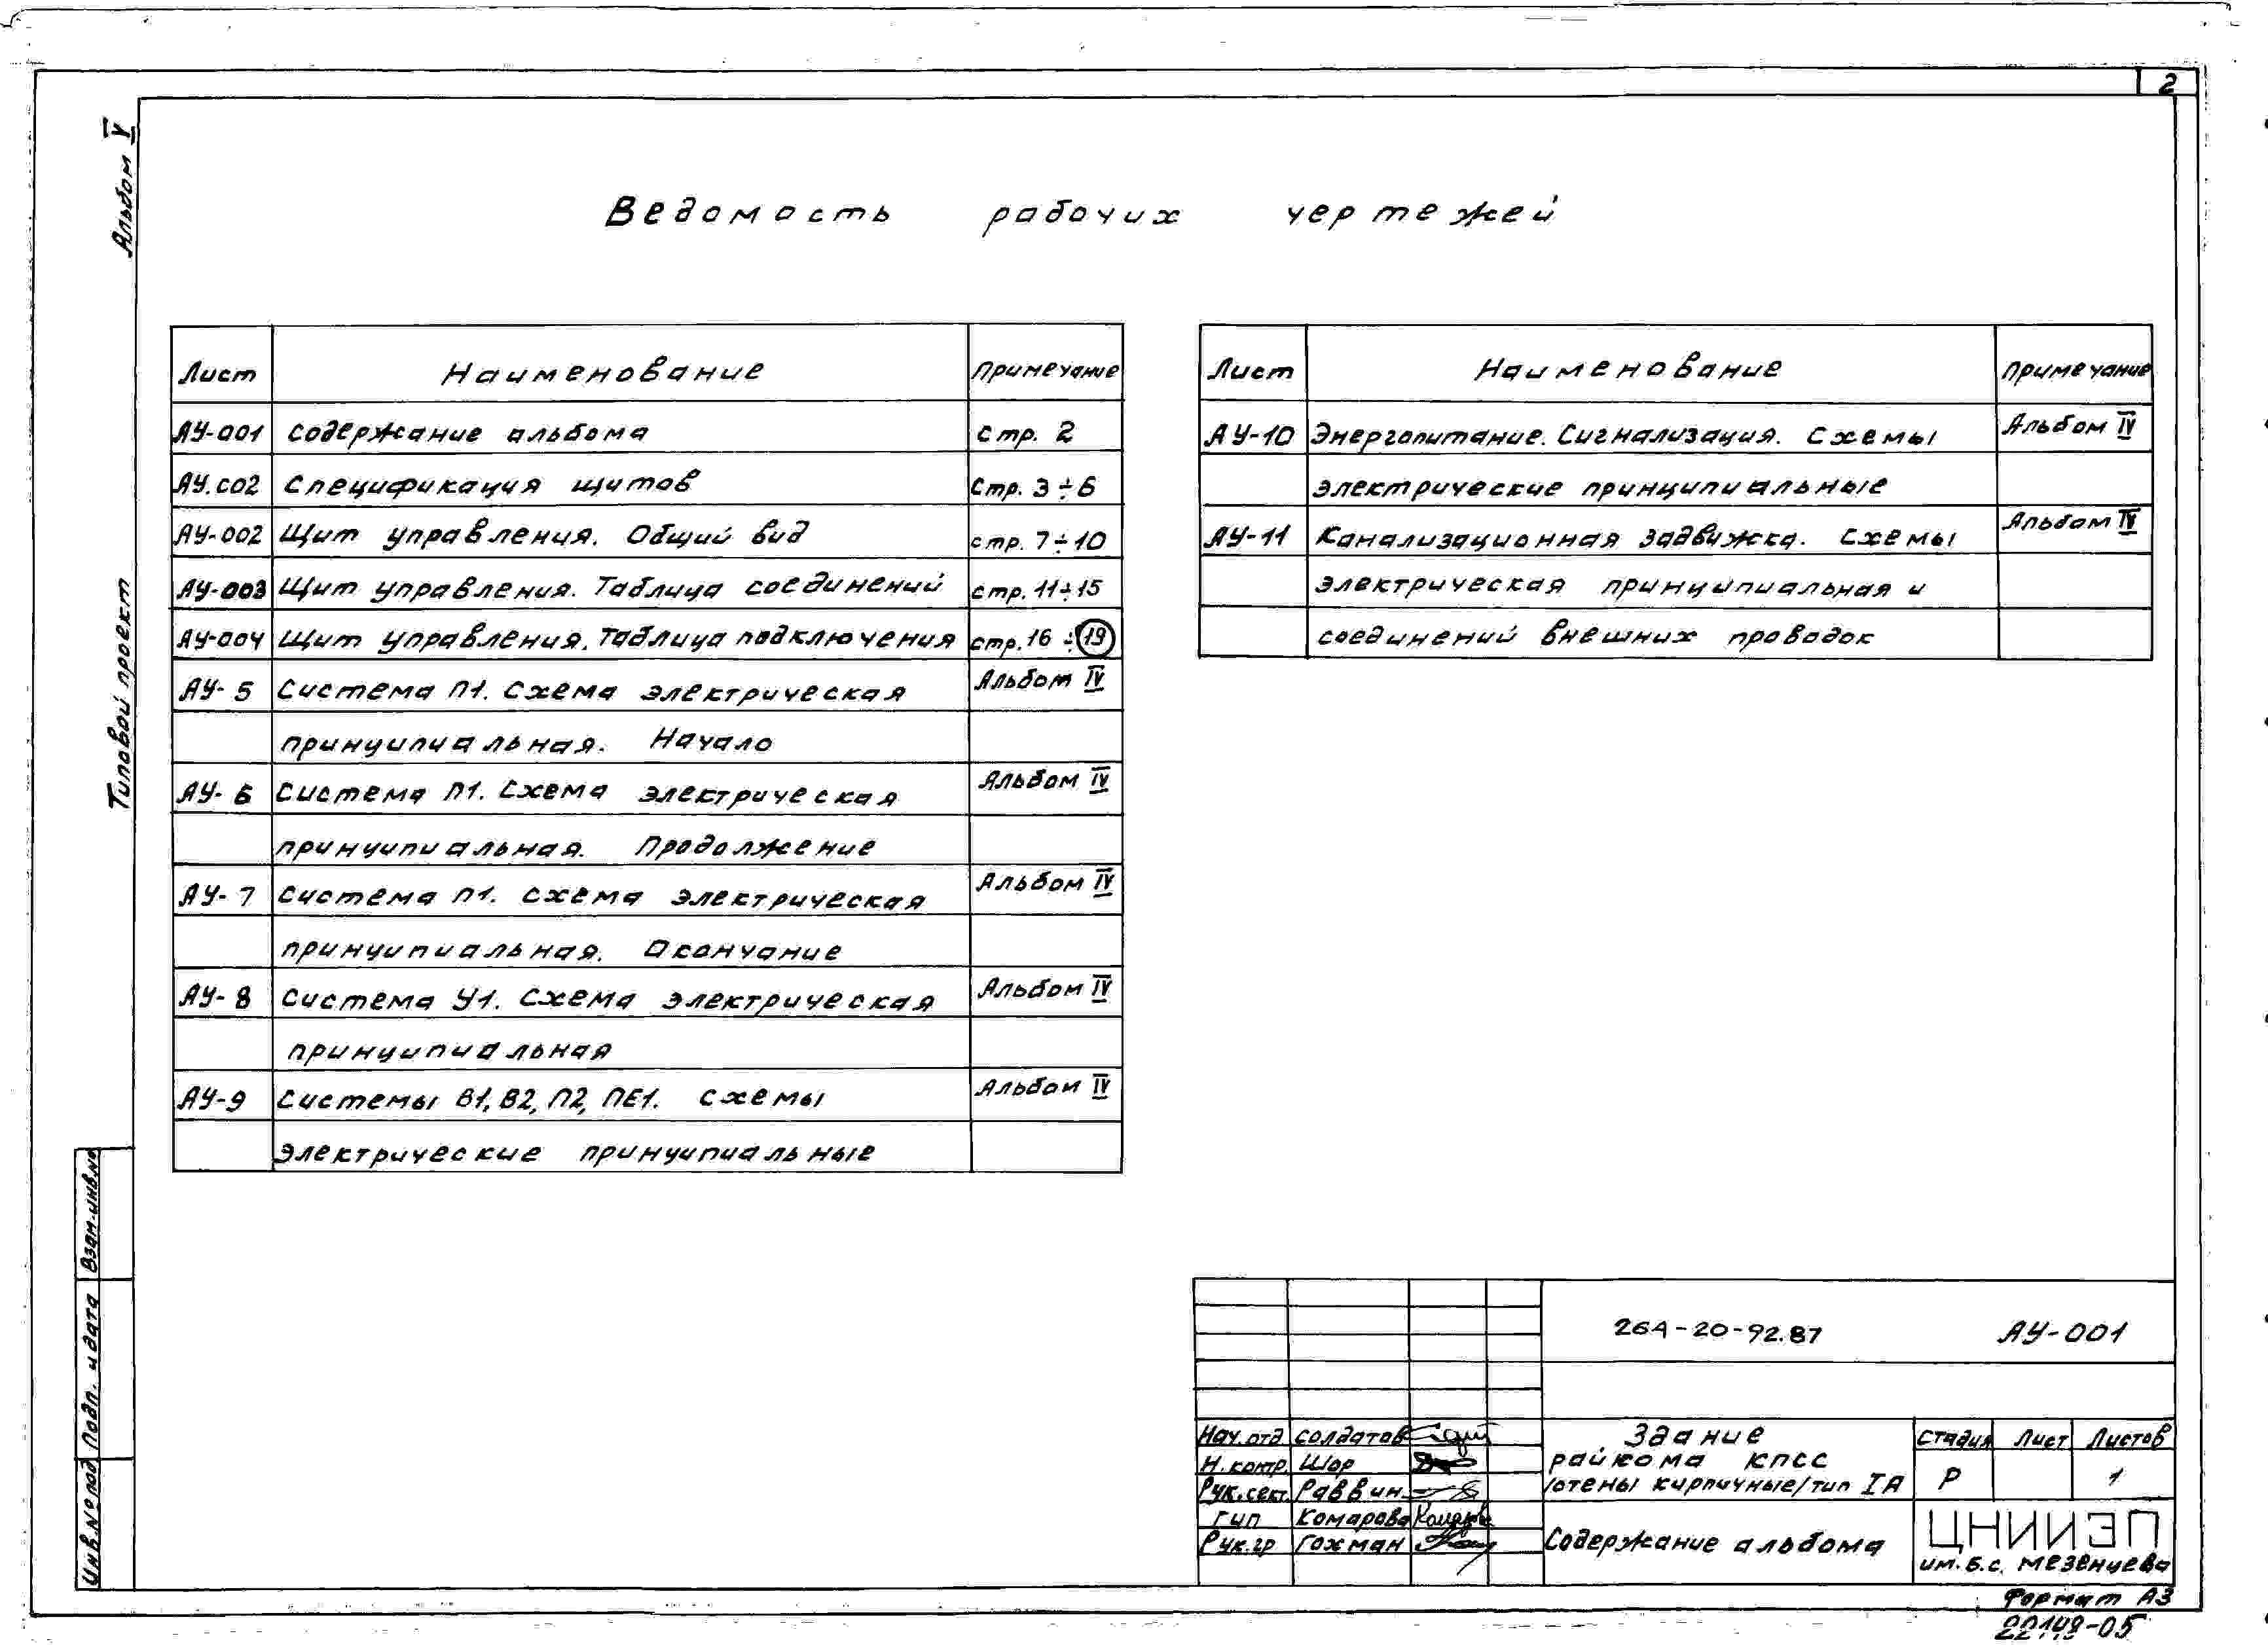 2
Альбом V
Типовой проект
Ведомость рабочих чертежей
Лист Наименование Примечание
АУ-001 Содержание альбома стр. 2
АУ.СО2 Спецификация щитов стр. 3÷6
АУ-002 Щит управления. Общий вид стр. 7÷10
АУ-003 Щит управления. Таблица соединений стр. 11÷15
АУ-004 Щит управления. Таблица подключения стр. 16÷19
АУ-5 Система П1. Схема электрическая Альбом IV
принципиальная. Начало
АУ-6 Система П1. Схема электрическая Альбом IV
принципиальная. Продолжение
АУ-7 Система П1. Схема электрическая Альбом IV
принципиальная. Окончание
АУ-8 Система У1. Схема электрическая Альбом IV
принципиальная
АУ-9 Системы В1, В2, П2, ПЕ1. Схемы Альбом IV
электрические принципиальные
Лист Наименование Примечание
АУ-10 Энергопитание. Сигнализация. Схемы Альбом IV
электрические принципиальные
АУ-11 Канализационная задвижка. Схемы Альбом IV
электрическая принципиальная и
соединений внешних проводок
Взам.инв.№
Подп. и дата
Инв.№ под
26А-20-92.87 АУ-001
Нач.отд Солдатов
Н.контр. Шор
Рук.сект. Раввин
ГИП Комарова
Рук.гр Гохман
Здание
райкома КПСС
/стены кирпичные/ тип IА
Стадия Лист Листов
Р 1
Содержание альбома
ЦНИИЭП
им. Б.С. Мезенцева
Формат А3
22148-05